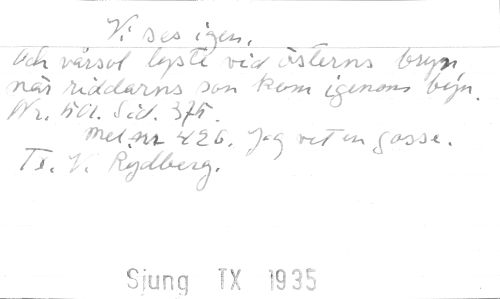 Vi ses igen.
Och vårsol lyste vid österns bryn
när riddarns son kom igenom byn.
Nr. 501. Sid. 375.
Mel. nr 426. Jag vet en gosse.
Tx. V. Rydberg.
Sjung TX 1935